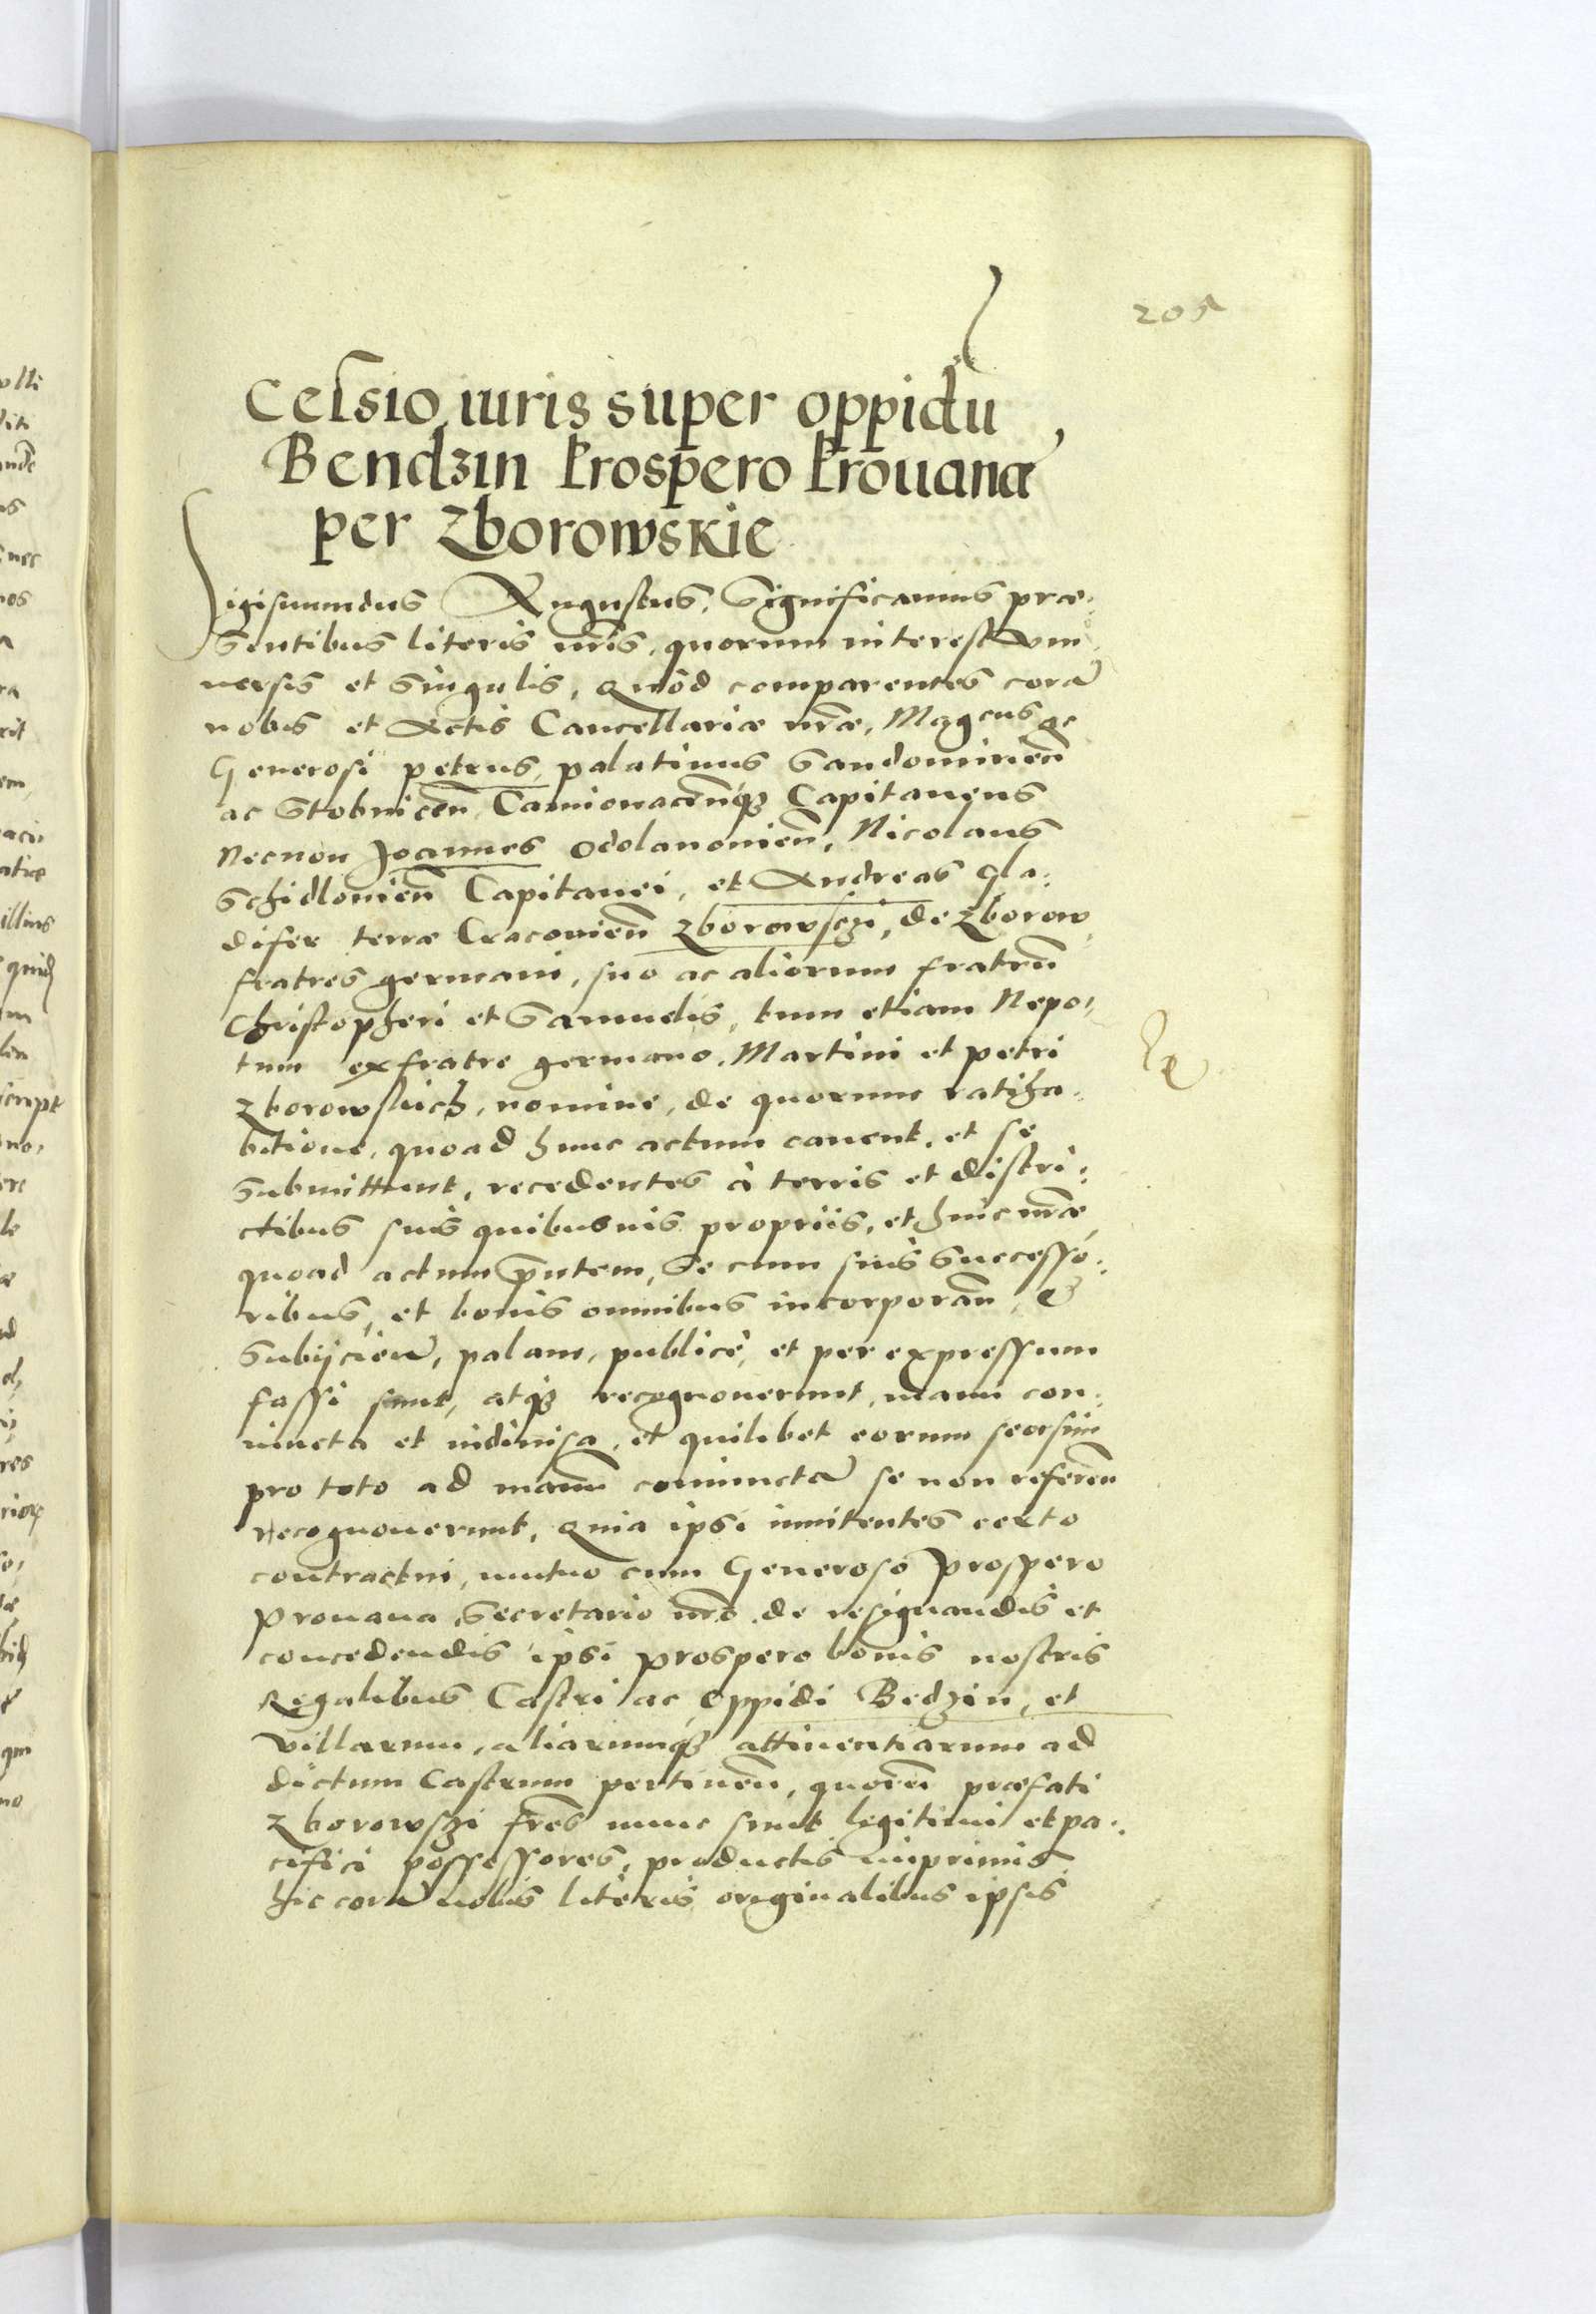 205
Cessio iuris super oppidu
Bendzin Prospero Prouana
per Zborowskie
Sigismundus Augustus, Significamus præ:
sentibus literis nr̃is, quorum interest vni
uersis et singulis, Quòd comparentes corã
nobis et Actis Cancellariæ nr̃æ, Magcus ac
Generosi petrus, palatinus Sandomirien̄
ac Stobnicen̄, Camionacen̄q₃ Capitaneus
Necnon Joannes Odolanouien̄, Nicolaus
Schidlouien̄ Capitanei, et Andreas Gla:
difer terræ Cracouien̄ Zborowsczi, de Zborow,
fratres germani, suo ac aliorum fratrū
Christopheri et Samuelis, tum etiam Nepo:
tum ex fratre germano, Martini et petri
Zborowskich, nomine, de quorum ratiha:
bitione, quoad hunc actum cauent, et se
submittunt, recedentes à terris et distri:
ctibus suis quibusuis propriis, et huic nr̃æ
quoad actum pñtem, Se cum suis successo:
ribus, et bonis omnibus incorporan̄, &
Subijcien̄, palam, publicè, et per expressum
fassi sunt, atq₃ recognouerunt, manu con:
iuncta et indiuisa, et quilibet eorum seorsim
pro toto ad manū coniunctã se non referen̄
Recognouerunt, Quia ipsi innitentes certo
contractui, mutuo cum Generoso Prospero
Prouana Secretario nr̃o de resignandis et
concedendis ipsi Prospero bonis nostris
Regalibus Castri ac Oppidi Bedzin, et
villarum, aliarumq₃ attinentiarum ad
dictum Castrum pertinen̄, quorū præfati
Zborowszi fr̃es nunc sunt legitimi et pa:
cifici possessores, productis inprimis
hic corã nobis literis originalibus ipsis